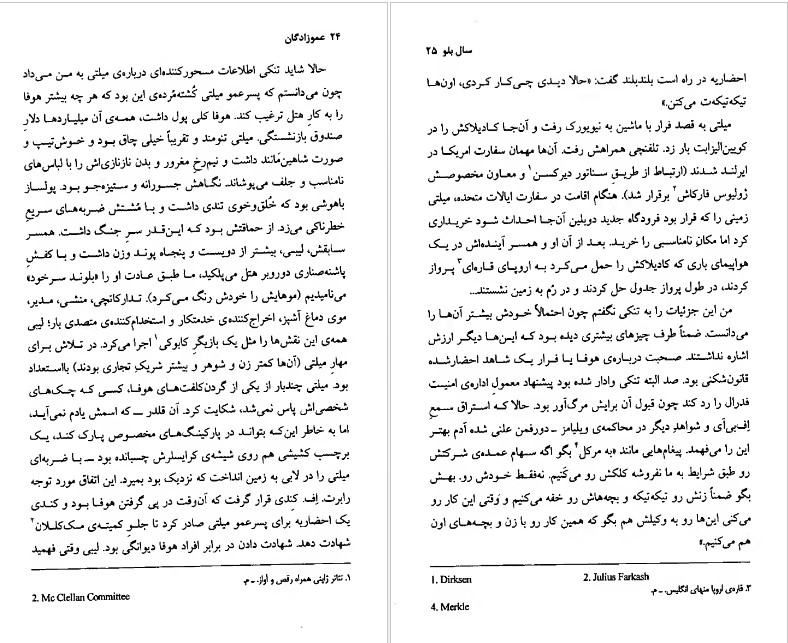 ۲۴ عموزادگان
حالا شاید تنکی اطلاعات مسحورکننده‌ای درباره‌ی میلتی به من می‌داد
چون می‌دانستم که پسرعمو میلتی کُشته‌مُرده‌ی این بود که هر چه بیشتر هوفا
را به کارِ هتل ترغیب کند. هوفا کلی پول داشت، همه‌ی آن میلیاردها دلارِ
صندوق بازنشستگی. میلتی تنومند و تقریباً خیلی چاق بود و خوش‌تیپ و
صورت شاهین‌مانند داشت و نیم‌رخ مغرور و بدن نازنازی‌اش را با لباس‌های
نامناسب و جلف می‌پوشاند. نگاهش جسورانه و ستیزه‌جو بود. پولساز
باهوشی بود که خُلق‌وخوی تندی داشت و با مُشتش ضربه‌های سریعِ
خطرناکی می‌زد. از حماقتش بود که این‌قدر سرِ جنگ داشت. همسر
سابقش، لیبی، بیشتر از دویست و پنجاه پوند وزن داشت و با کفشِ
پاشنه‌صناری دوروبر هتل می‌پلکید، ما طبق عادت او را «بلوند سرخود»
می‌نامیدیم (موهایش را خودش رنگ می‌کرد). تدارکاتچی، منشی، مدیر،
موی دماغ آشپز، اخراج‌کننده‌ی خدمتکار و استخدام‌کننده‌ی متصدی بار؛ لیبی
همه‌ی این نقش‌ها را مثل یک بازیگرِ کابوکی۱ اجرا می‌کرد. در تلاش برای
مهارِ میلتی (آن‌ها کمتر زن و شوهر و بیشتر شریک تجاری بودند) بااستعداد
بود. میلتی چندبار از یکی از گردن‌کلفت‌های هوفا، کسی که چک‌های
شخصی‌اش پاس نمی‌شد، شکایت کرد. آن قلدر ــ که اسمش یادم نمی‌آید،
اما به خاطر این‌که بتواند در پارکینگ‌های مخصوص پارک کند، یک
برچسب کشیشی هم روی شیشه‌ی کرایسلرش چسبانده بود ــ با ضربه‌ای
میلتی را در لابی به زمین انداخت که نزدیک بود بمیرد. این اتفاق مورد توجه
رابرت. اِف. کِندی قرار گرفت که آن‌وقت در پی گرفتن هوفا بود و کندی
یک احضاریه برای پسرعمو میلتی صادر کرد تا جلو کمیته‌ی مک‌کلالان۲
شهادت دهد. شهادت دادن در برابر افراد هوفا دیوانگی بود. لیبی وقتی فهمید
۱. تئاتر ژاپنی همراه رقص و آواز. ــ م.
2. Mc Clellan Committee
سال بلو ۲۵
احضاریه در راه است بلندبلند گفت: «حالا دیدی چی‌کار کردی، اون‌ها
تیکه‌تیکه‌ت می‌کنن.»
میلتی به قصد فرار با ماشین به نیویورک رفت و آن‌جا کادیلاکش را در
کویین‌الیزابت بار زد. تلفنچی همراهش رفت. آن‌ها مهمان سفارت امریکا در
ایرلند شدند (ارتباط از طریق سناتور دیرکسن۱ و معاون مخصوصش
ژولیوس فارکاش۲ برقرار شد). هنگام اقامت در سفارت ایالات متحده، میلتی
زمینی را که قرار بود فرودگاه جدید دوبلین آن‌جا احداث شود خریداری
کرد اما مکانِ نامناسبی را خرید. بعد از آن او و همسر آینده‌اش در یک
هواپیمای باری که کادیلاکش را حمل می‌کرد به اروپای قاره‌ای۳ پرواز
کردند، در طول پرواز جدول حل کردند و در رُم به زمین نشستند...
من این جزئیات را به تنکی نگفتم چون احتمالاً خودش بیشتر آن‌ها را
می‌دانست. ضمناً طرف چیزهای بیشتری دیده بود که این‌ها دیگر ارزش
اشاره نداشتند. صحبت درباره‌ی هوفا یا فرار یک شاهد احضارشده
قانون‌شکنی بود. صد البته تنکی وادار شده بود پیشنهاد معمولِ اداره‌ی امنیت
فدرال را رد کند چون قبول آن برایش مرگ‌آور بود. حالا که استراق سمعِ
اِف‌بی‌آی و شواهدِ دیگر در محاکمه‌ی ویلیامز ـ دورفمن علنی شده آدم بهتر
این را می‌فهمد. پیغام‌هایی مانند «به مرکل۴ بگو اگه سهام عمده‌ی شرکتش
رو طبق شرایط به ما نفروشه کلکش رو می‌کَنیم. نه‌فقط خودش رو. بهش
بگو ضمناً زنش رو تیکه‌تیکه و بچه‌هاش رو خفه می‌کنیم و وَقتی این کار رو
می‌کنی این‌ها رو به وکیلش هم بگو که همین کار رو با زن و بچه‌های اون
هم می‌کنیم.»
1. Dirksen
2. Julius Farkash
۳. قاره‌ی اروپا منهای انگلیس. ــ م.
4. Merkle